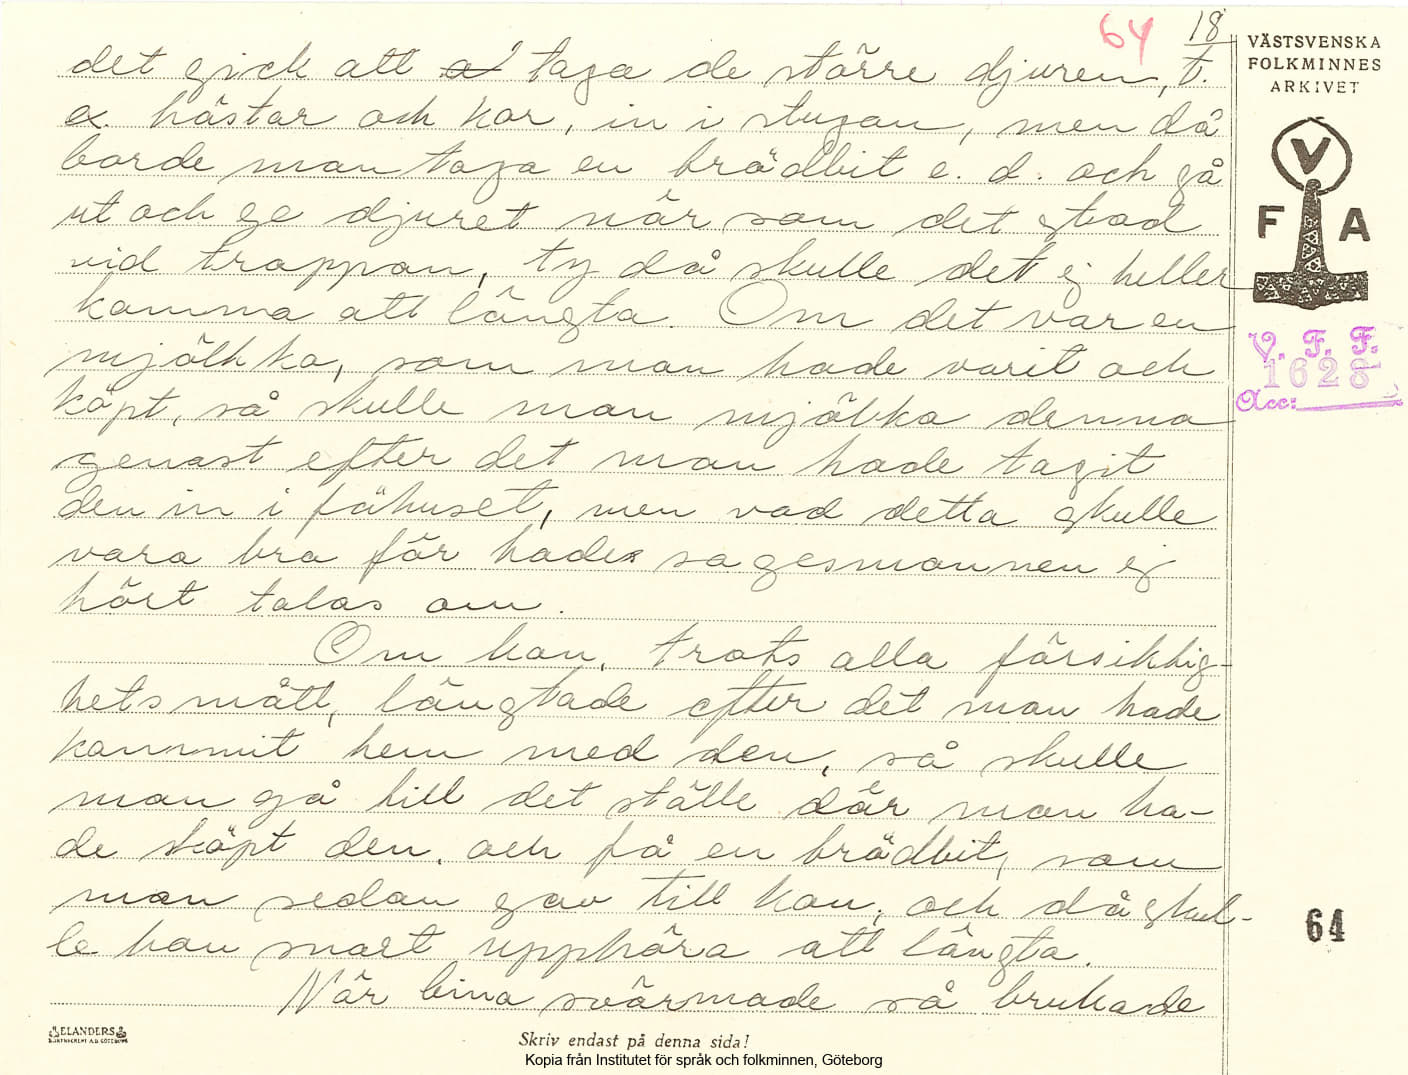 64 18
det gick att taga de större djuren, t.
ex hästar och kor, in i stugan, men då
borde man taga en brödbit e. d. och gå
ut och ge djuret när som det stod
vid trappan, ty då skulle det ej heller
komma att längta. Om det var en
mjölkko, som man hade varit och
köpt, så skulle man mjölka denna
genast efter det man hade tagit
den in i fähuset, men vad detta skulle
vara bra för hade sagesmannen ej
hört talas om.
Om kon, trots alla försiktig-
hetsmått, längtade efter det man hade
kommit hem med den, så skulle
man gå till det ställe där man ha-
de köpt den, och få en brödbit, som
man sedan gav till kon, och då skul-
le hon snart upphöra att längta.
När bina svärmade så brukade
VÄSTSVENSKA
FOLKMINNES
ARKIVET
V
F A
V. F. F.
1628
Acc:
64
ELANDERS
BOKTRYCKERI A.B. GÖTEBORG
Skriv endast på denna sida!
Kopia från Institutet för språk och folkminnen, Göteborg